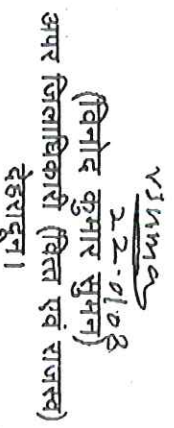 22.01.08
(विनोद कुमार सुमन)
अपर जिलाधिकारी (वित्त एवं राजस्व)
देहरादून।